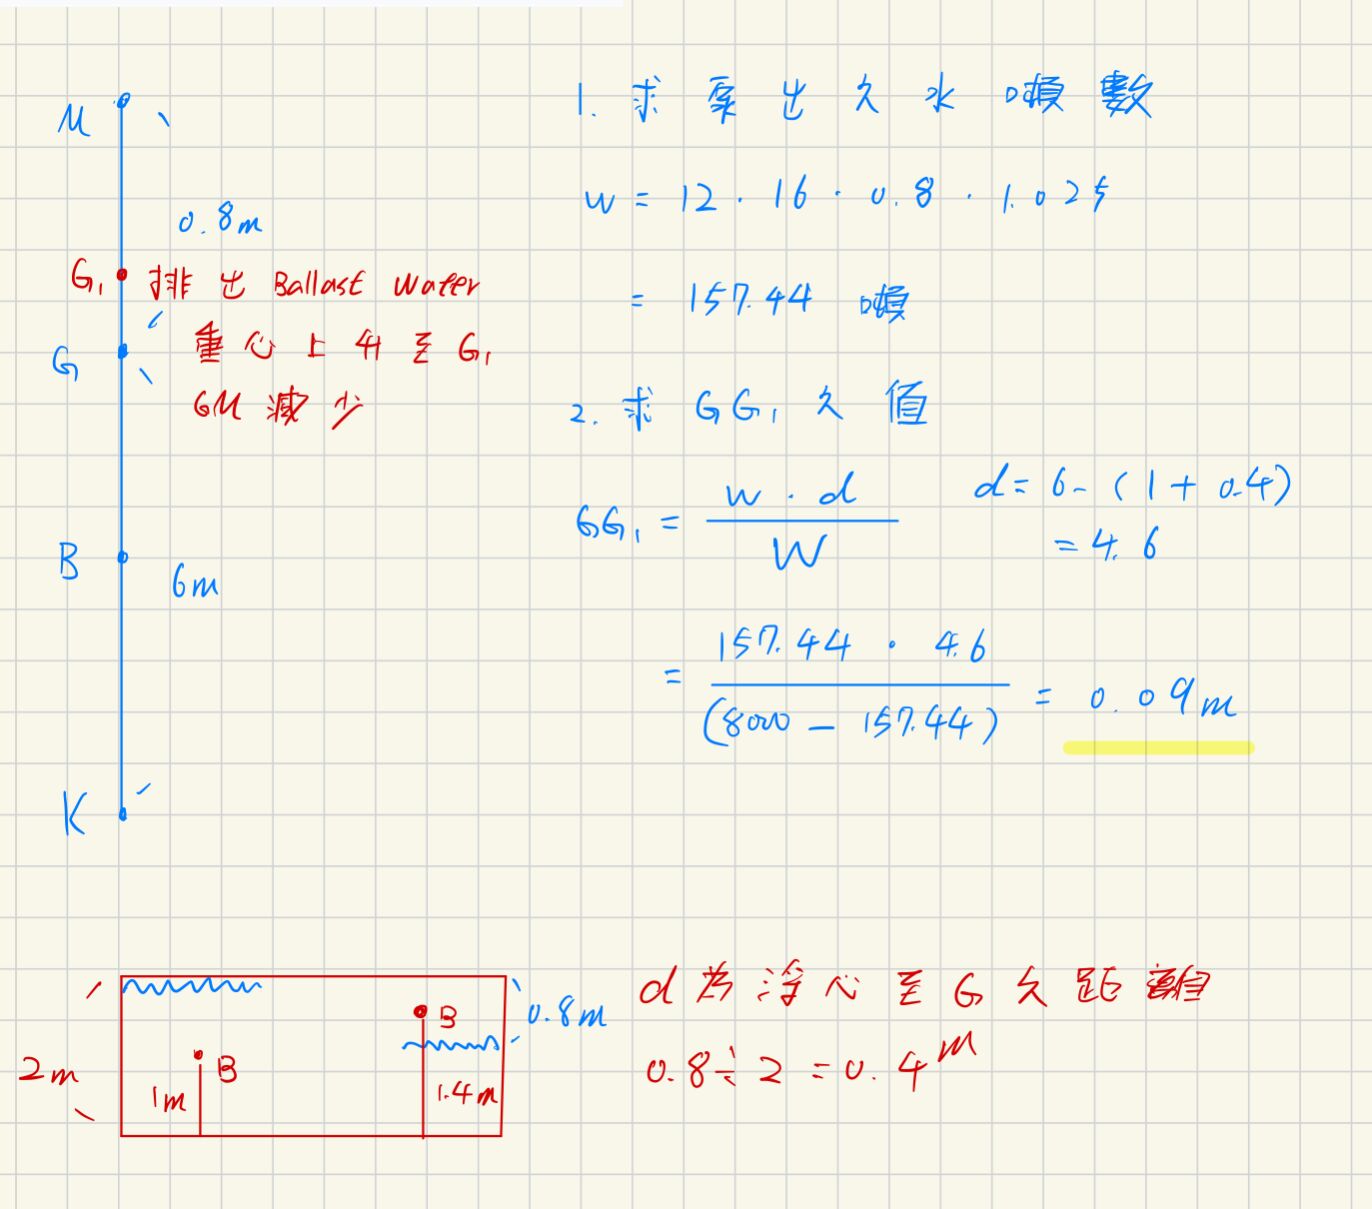 M
0.8m
G₁ 排出 Ballast Water
重心上升至 G₁
GM 減少
G
B
6m
K
1. 求泵出之水噸數
w = 12 · 16 · 0.8 · 1.025
= 157.44 噸
2. 求 GG₁ 之值
GG₁ = w · d / W
d = 6 - (1 + 0.4)
= 4.6
= 157.44 · 4.6 / (8000 - 157.44) = 0.09m
2m
B
1m
B
1.4m
0.8m
d 為浮心至 G 之距離
0.8 ÷ 2 = 0.4 m